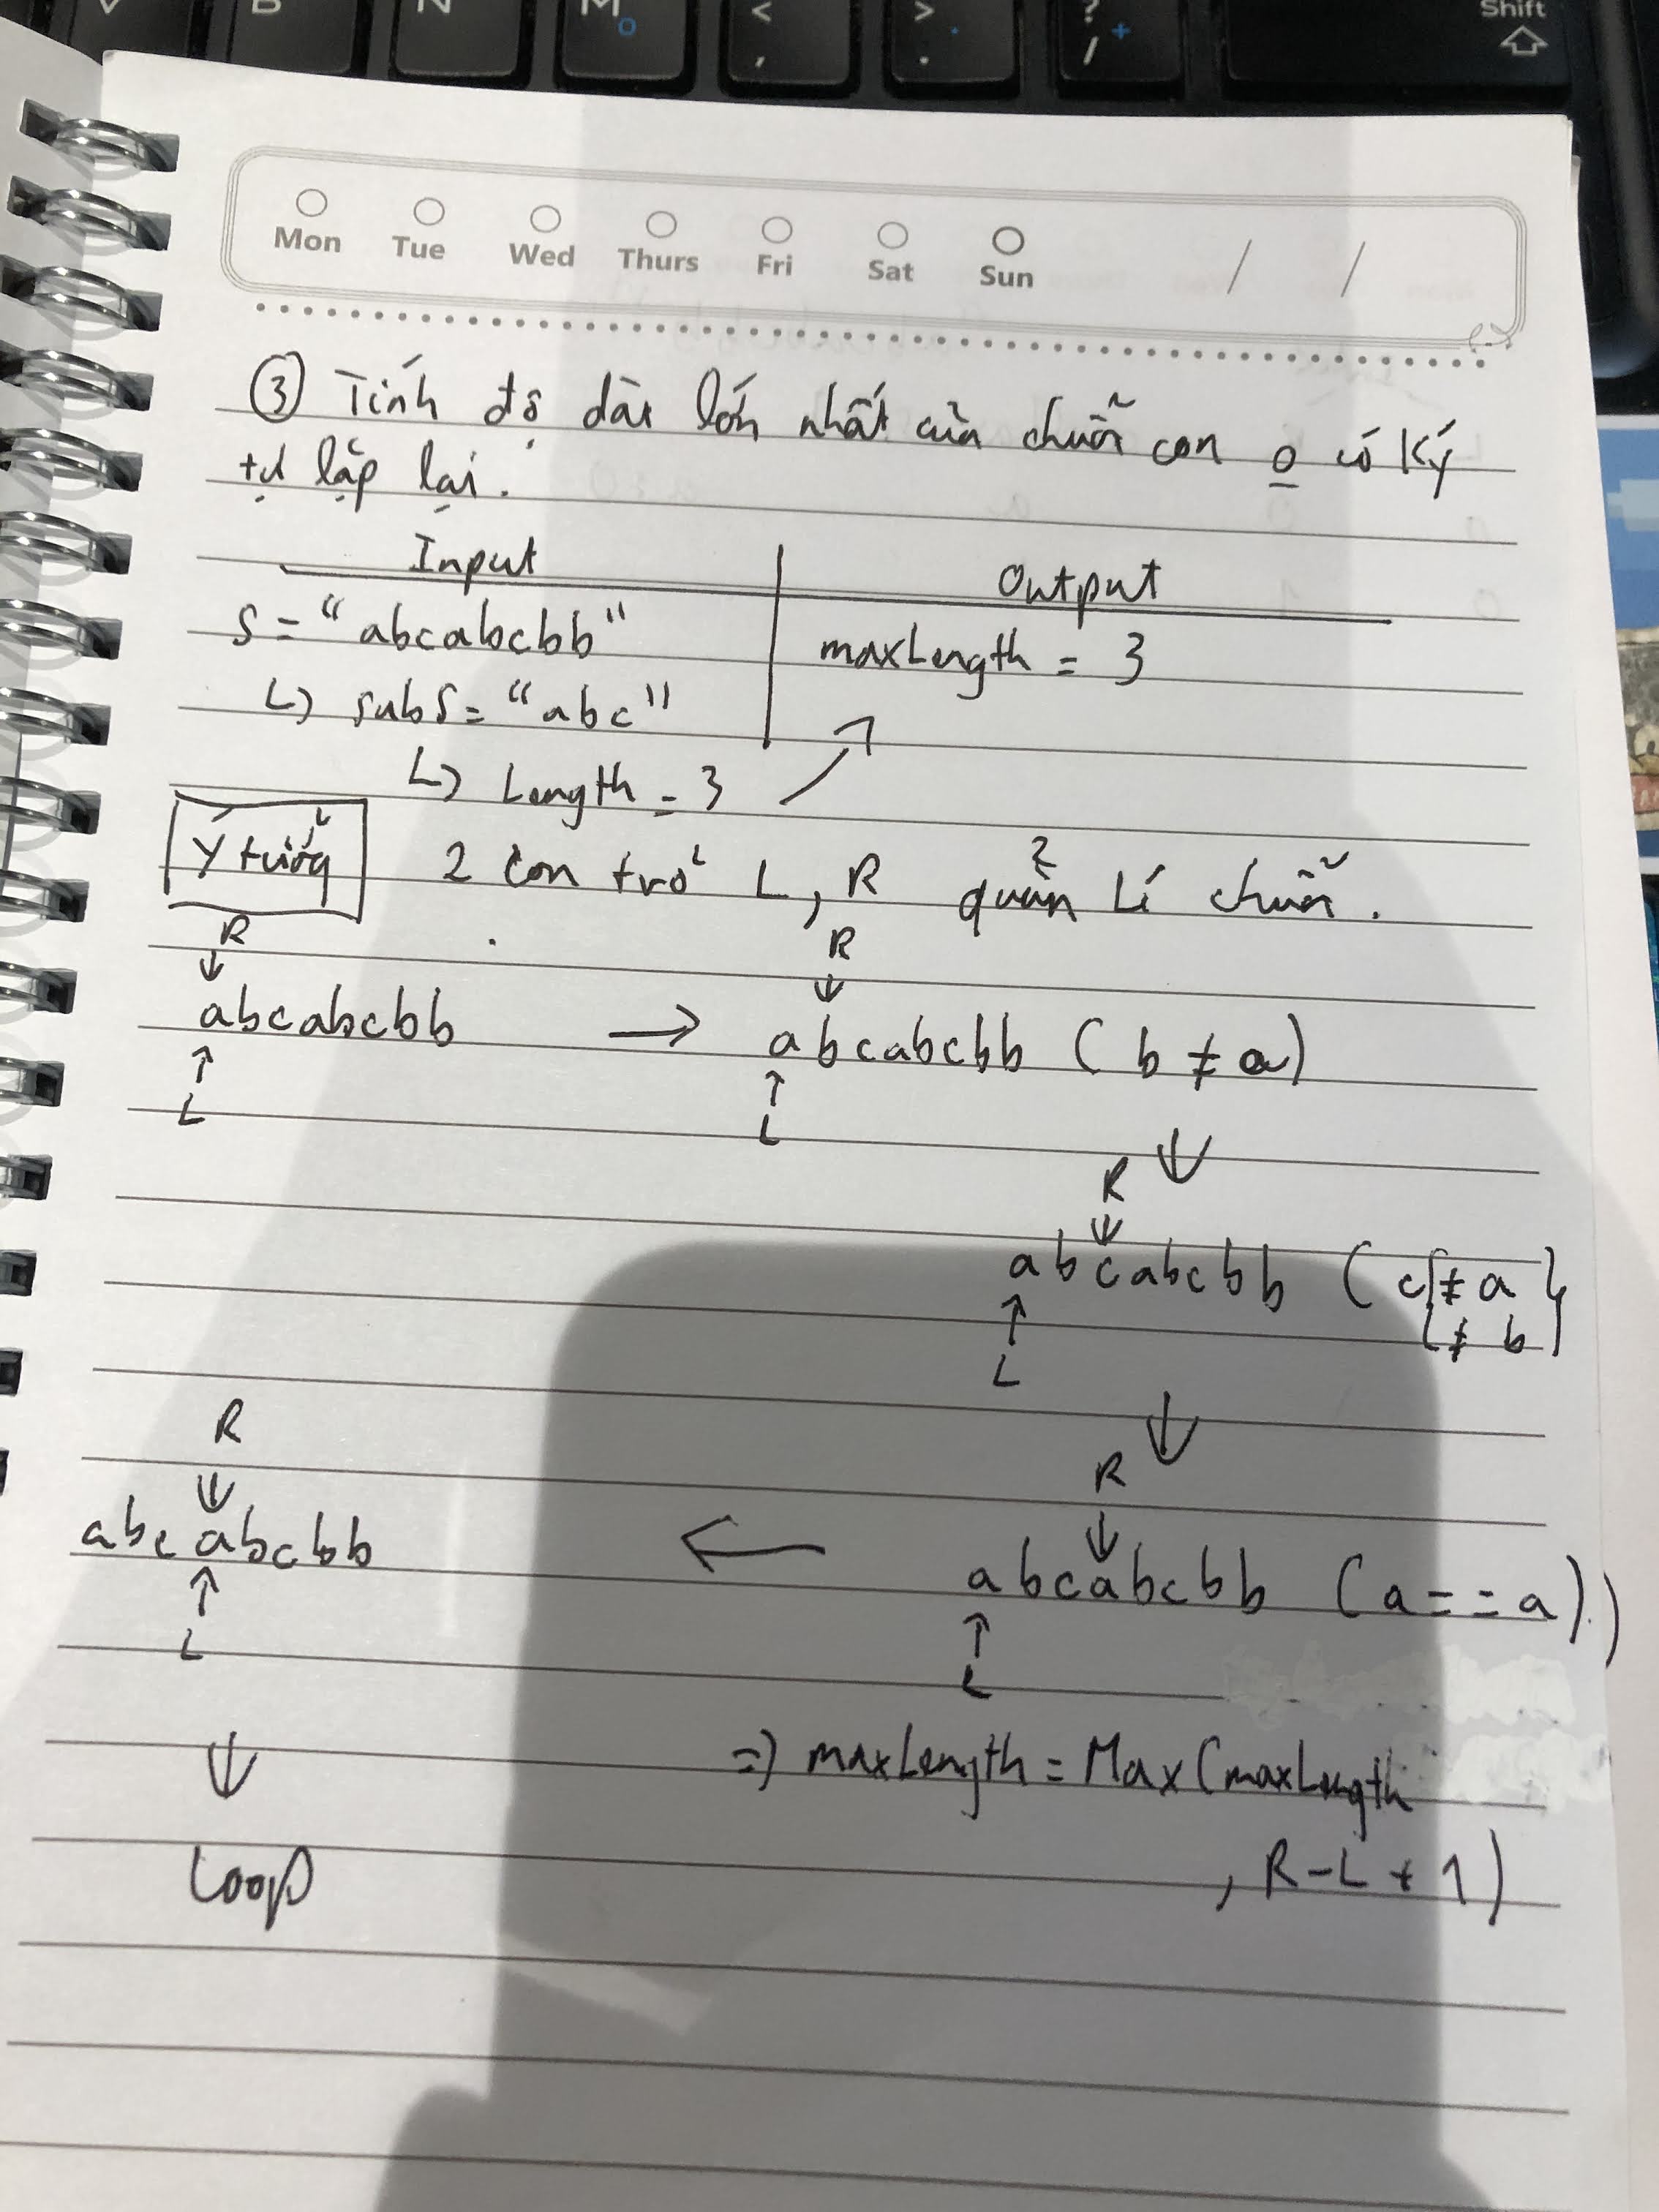 V B N M O < , > . ? / + Shift
Mon Tue Wed Thurs Fri Sat Sun / /
③ Tính độ dài lớn nhất của chuỗi con o có ký
tự lặp lại.
Input Output
S = "abcabcbb" maxLength = 3
↳ subS = "abc"
↳ Length = 3
Ý tưởng 2 con trỏ L, R quản lí chuỗi.
R R
↓ ↓
abcabcbb → abcabcbb ( b ≠ a )
↑ ↑
L L
↓
R
↓
abcabcbb ( c { ≠ a }
≠ b
↑
L
↓
R R
↓ ↓
abcabcbb ← abcabcbb ( a == a ) )
↑ ↑
L L
↓ => maxLength = Max(maxLength
Loop , R - L + 1 )